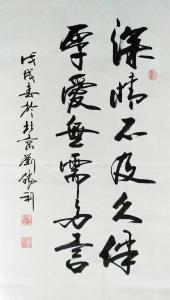 深情不及久伴
厚愛無需多言
戊戌春於北京劉勝利